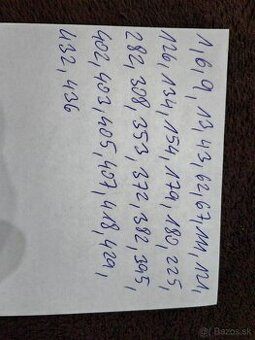 1, 6, 9, 13, 43, 62, 67, 111, 121,
126, 134, 154, 179, 180, 225,
282, 308, 353, 372, 382, 395,
402, 403, 405, 407, 418, 429,
432, 436
Bazar.sk